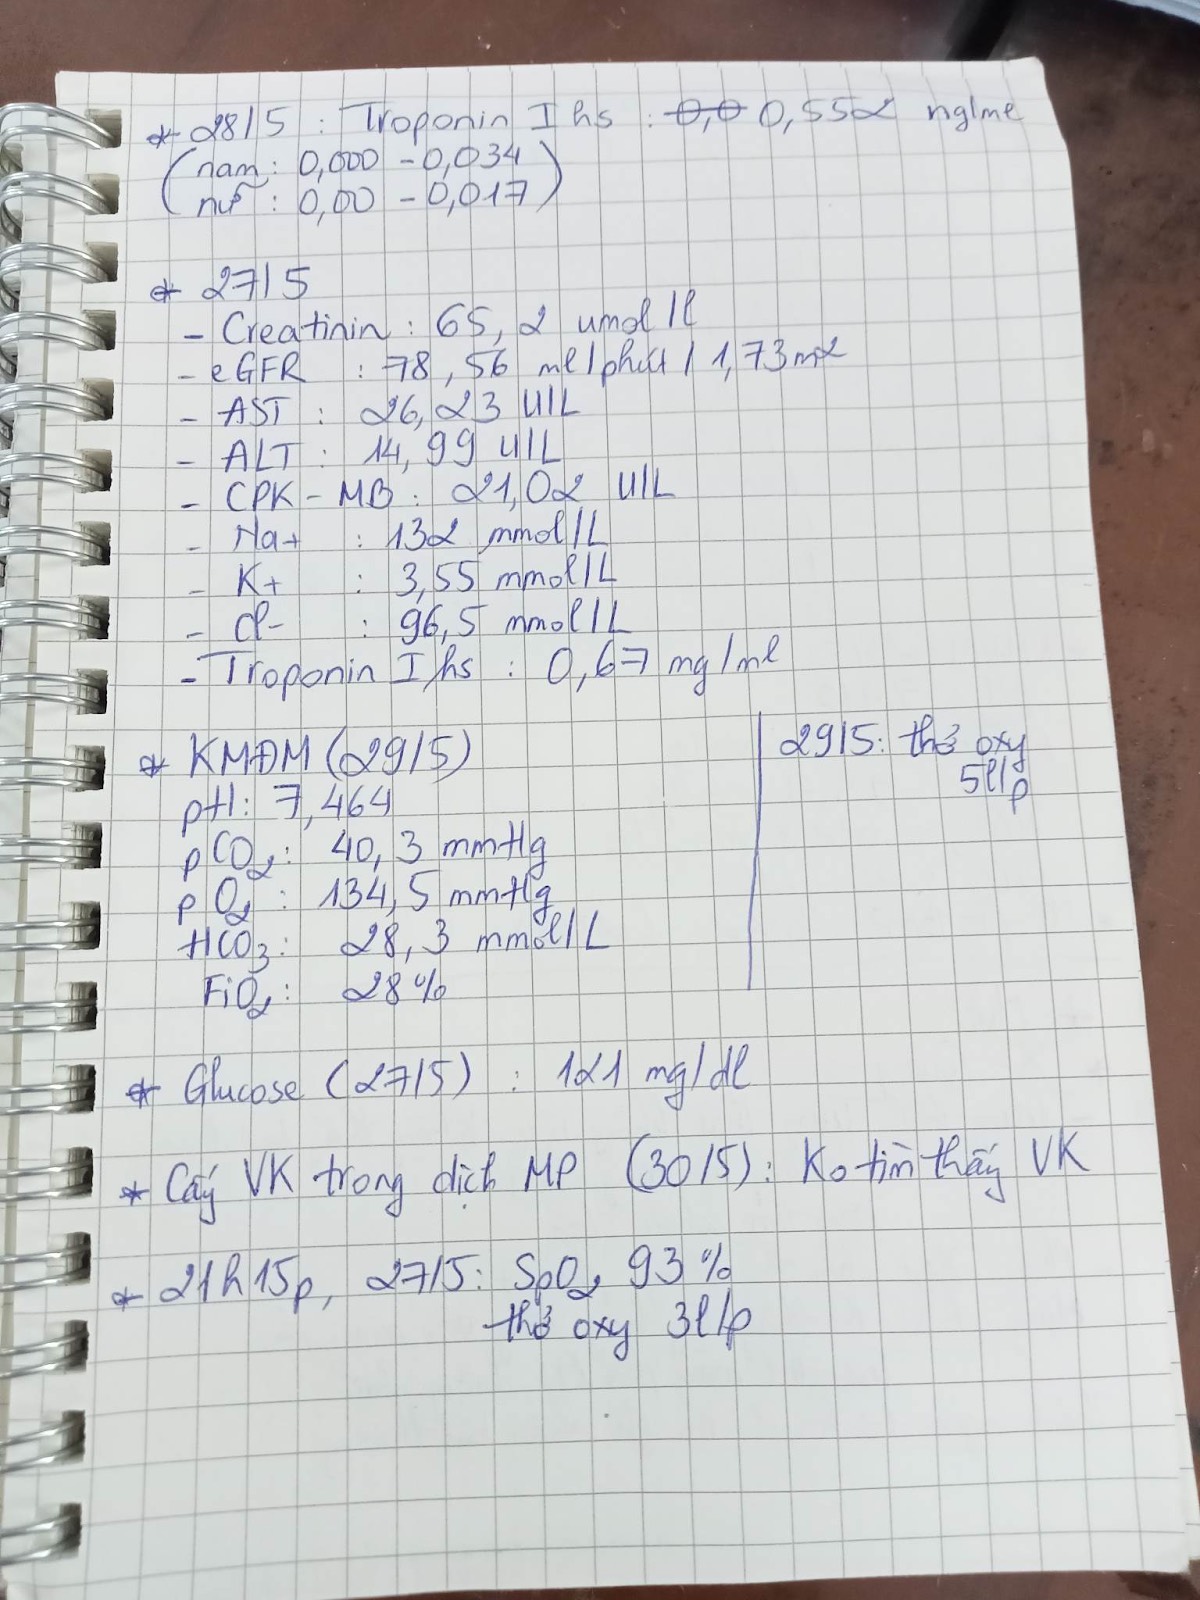 * 28/5 : Troponin I hs : 0,0 0,552 ng/ml
(nam : 0,000 - 0,034
nữ : 0,00 - 0,017)
* 27/5
- Creatinin : 65,2 umol/l
- eGFR : 78,56 ml/phút/1,73m2
- AST : 26,23 U/L
- ALT : 14,99 U/L
- CPK-MB : 21,02 U/L
- Na+ : 132 mmol/L
- K+ : 3,55 mmol/L
- Cl- : 96,5 mmol/L
- Troponin I hs : 0,67 mg/ml
* KMĐM (29/5)
pH: 7,464
pCO2: 40,3 mmHg
pO2: 134,5 mmHg
HCO3: 28,3 mmol/L
FiO2: 28%
29/5: thở oxy
5l/p
* Glucose (27/5) : 121 mg/dl
* Cấy VK trong dịch MP (30/5): Ko tìm thấy VK
* 21h15p, 27/5: SpO2 93%
thở oxy 3l/p